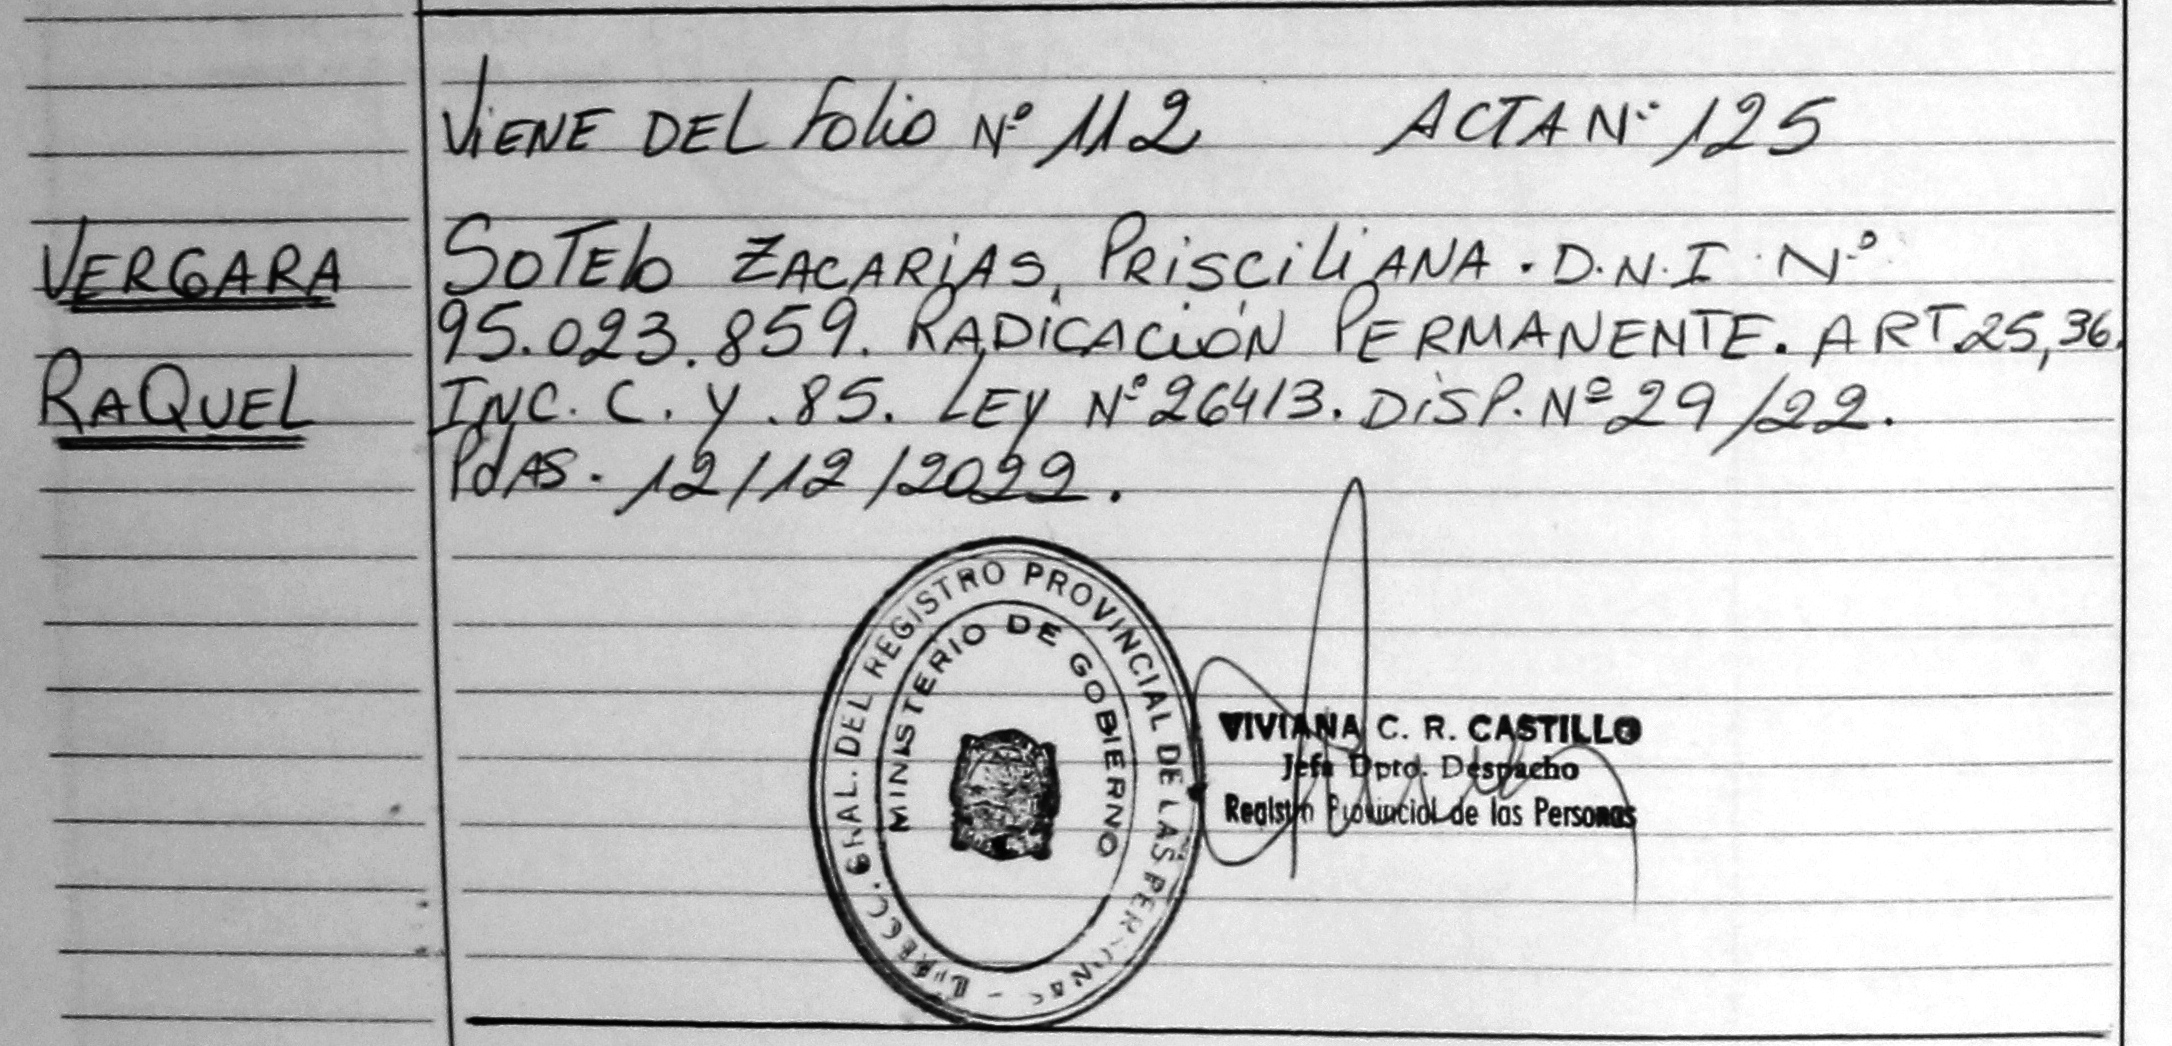 ViENE DEL Folio Nº 112 ACTA Nº 125
VERGARA
RAQUEL
SOTElo ZACARiAS, PRisciliANA. D.N.I. Nº
95.023.859. RADiCACiÓN PERMANENTE. ART 25, 36.
INC. C. y. 85. LEy Nº 26413. DiSP. Nº 29/22.
PdAS. 12/12/2022.
DIRECC. GRAL. DEL REGISTRO PROVINCIAL DE LAS PERSONAS -
MINISTERIO DE GOBIERNO
VIVIANA C. R. CASTILLO
Jefa Dpto. Despacho
Registro Provincial de las Personas